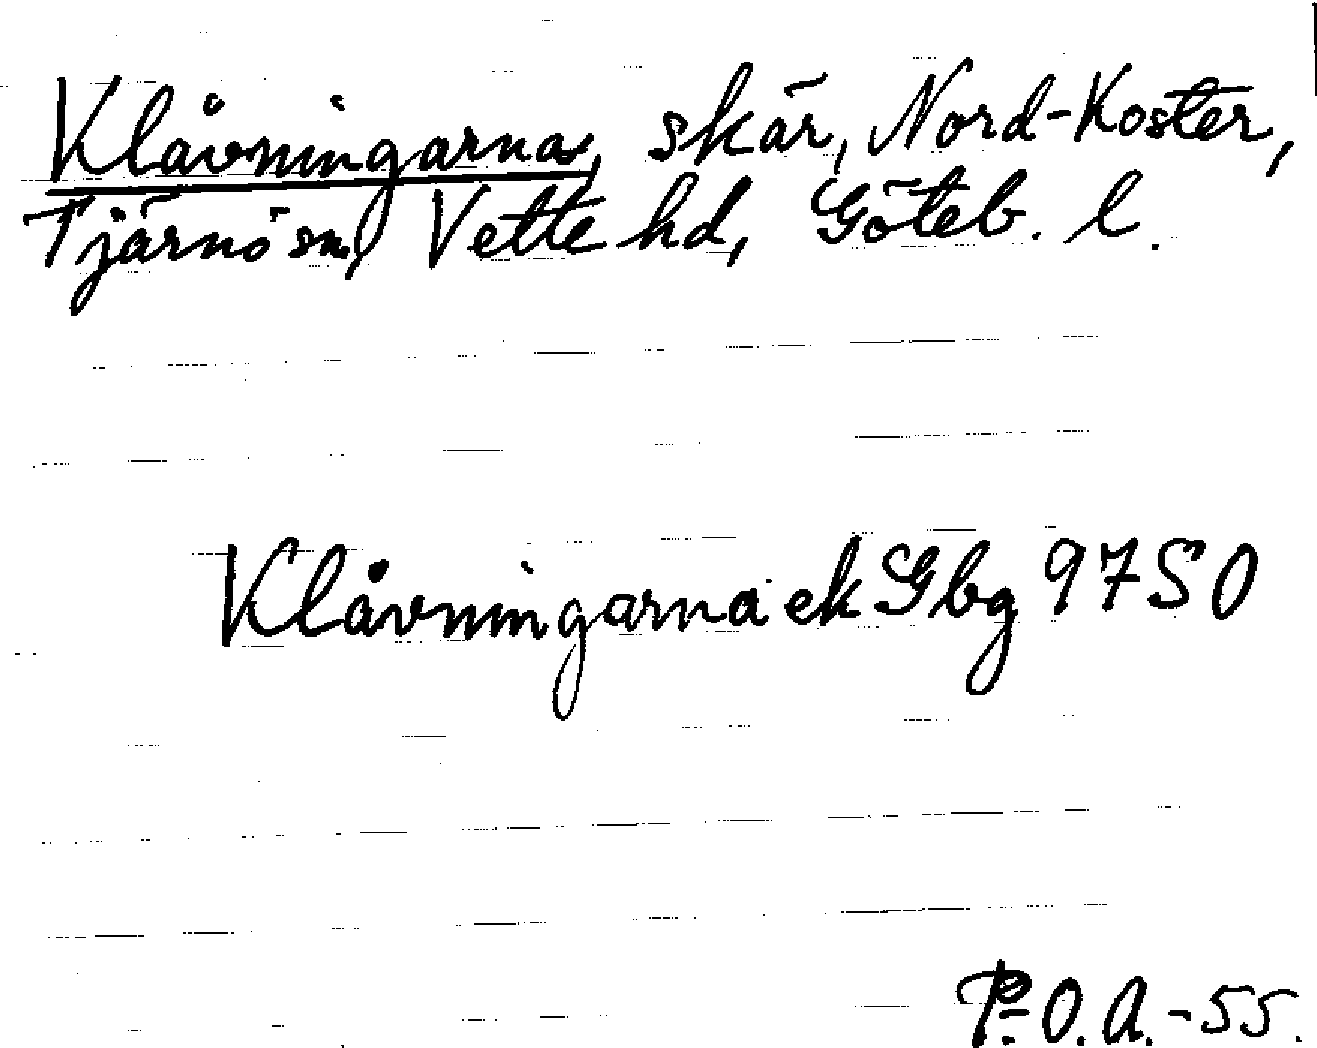 Klåvningarna, skär, Nord-Koster,
Tjärnö sn, Vette hd, Göteb. l.
Klåvningarna ek Gbg 9750
P.O.A.-55.